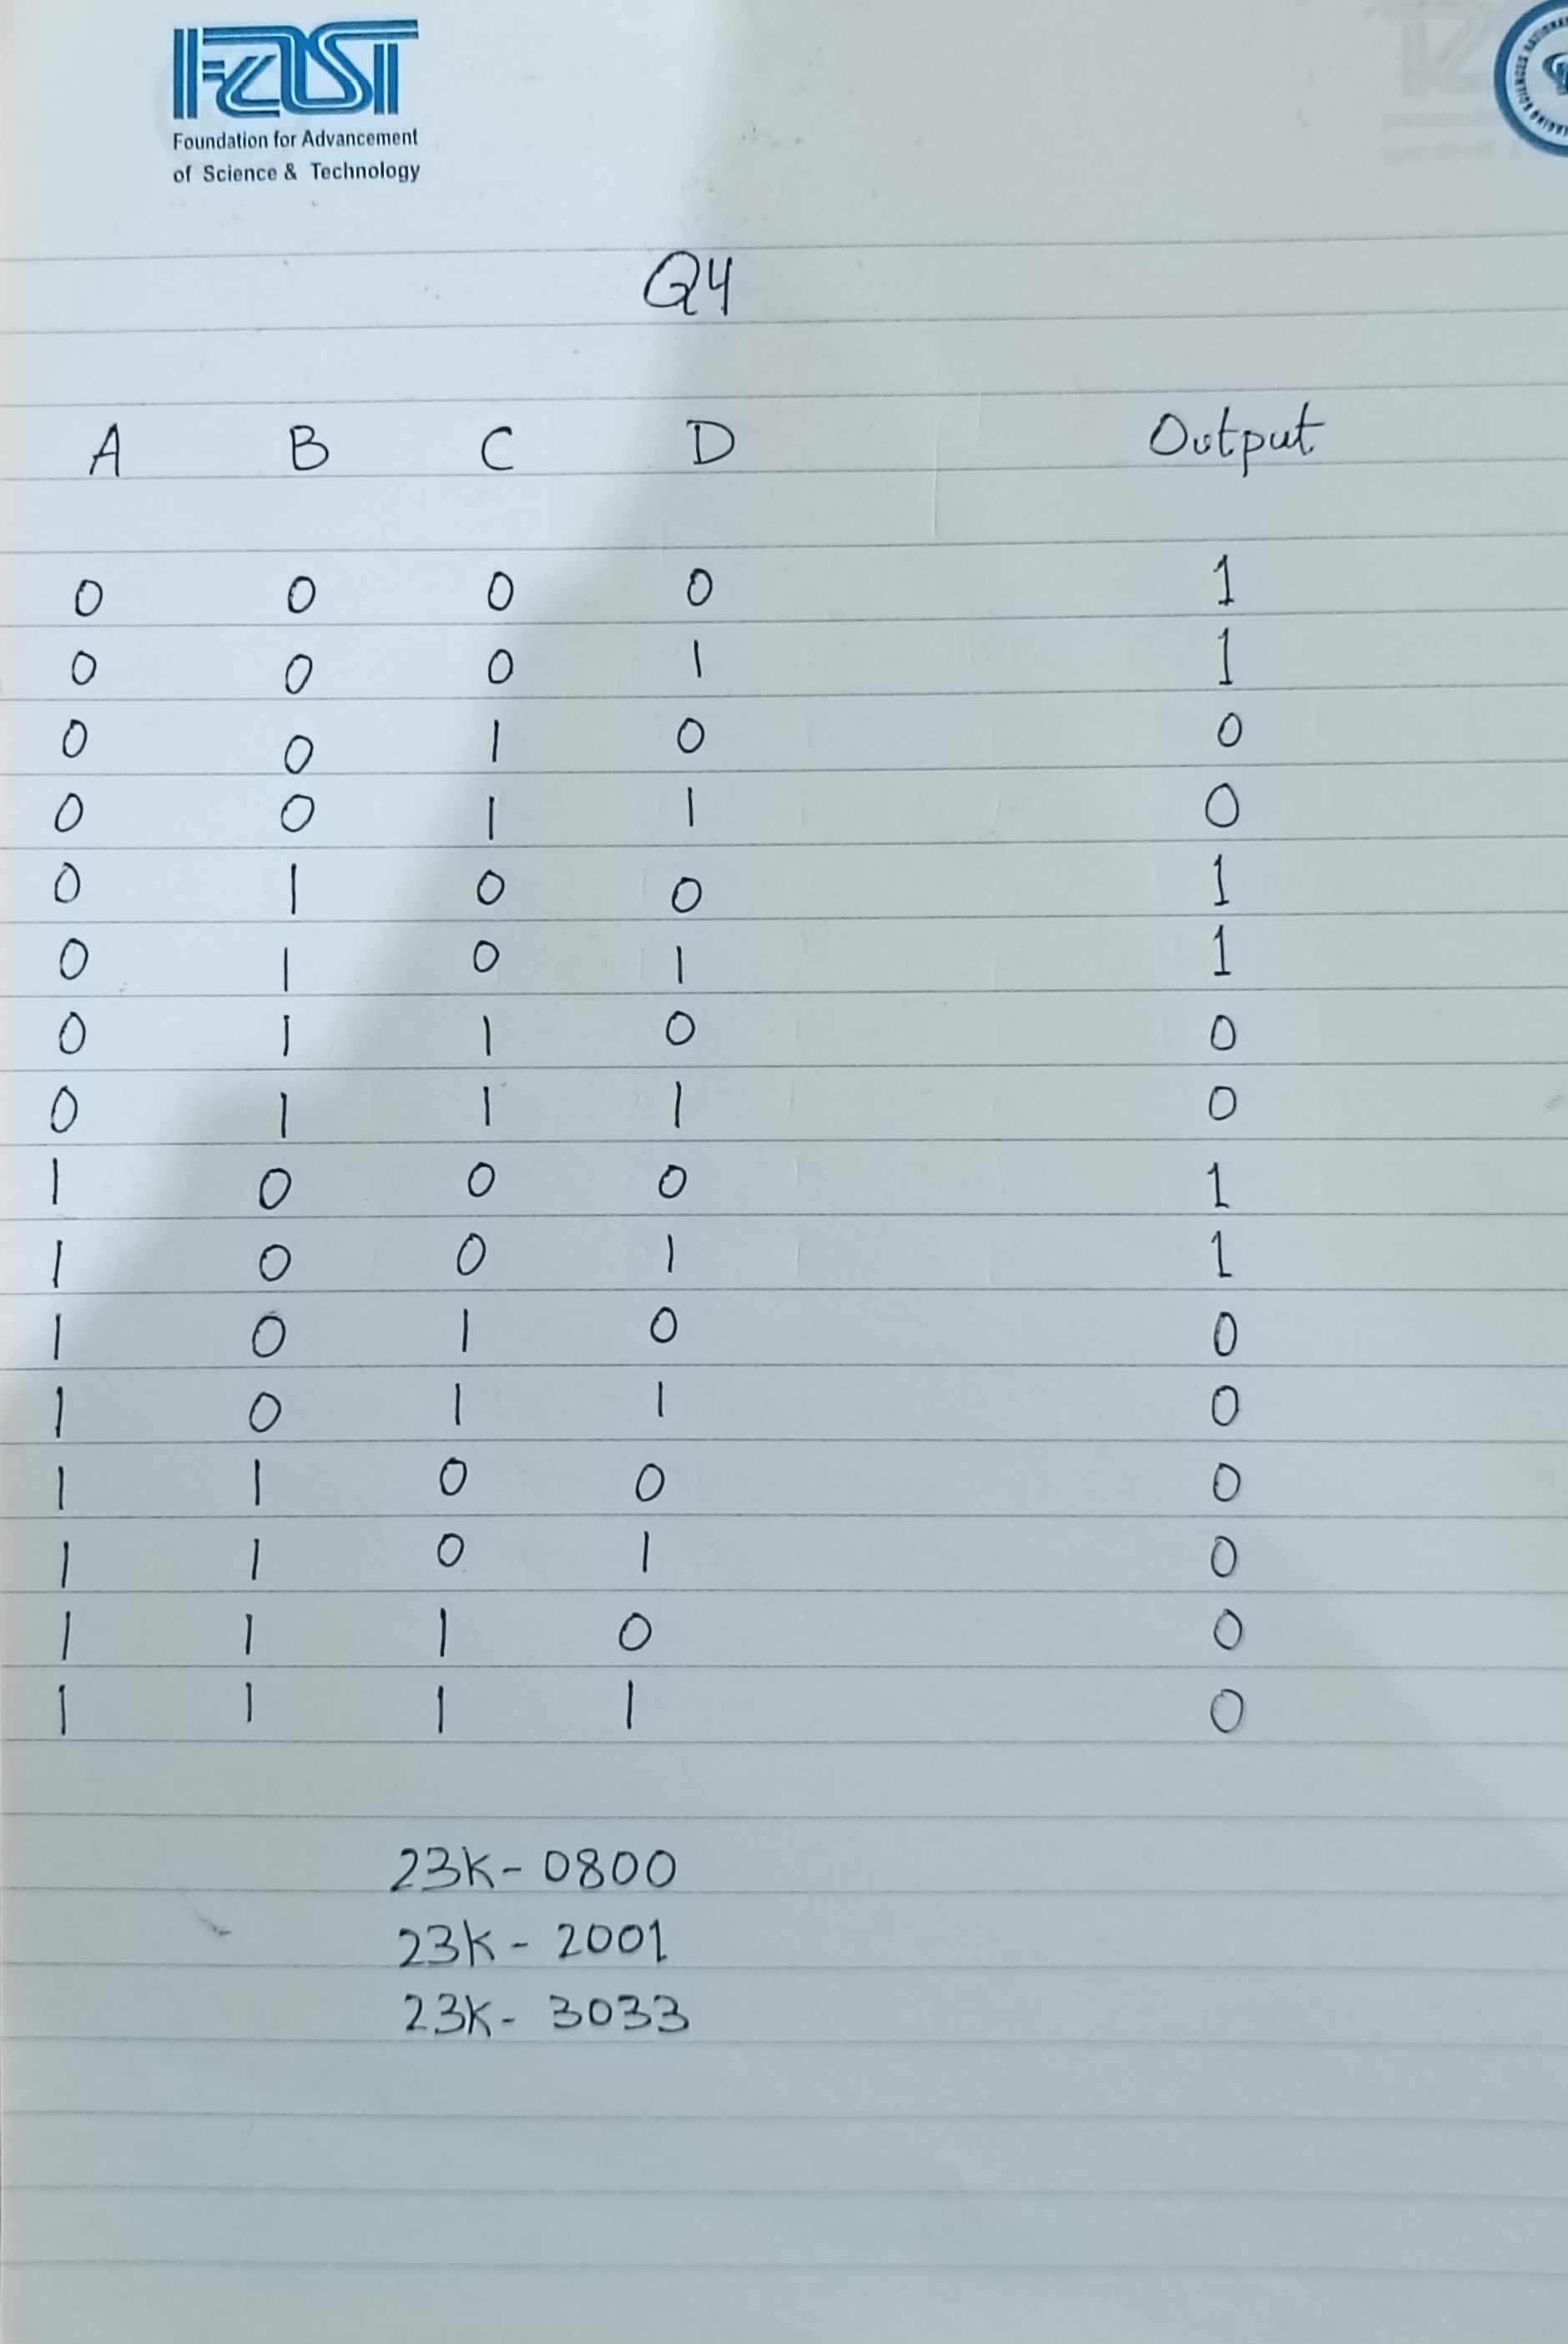 FAST
Foundation for Advancement
of Science & Technology
Q4
A B C D Output
0 0 0 0 1
0 0 0 1 1
0 0 1 0 0
0 0 1 1 0
0 1 0 0 1
0 1 0 1 1
0 1 1 0 0
0 1 1 1 0
1 0 0 0 1
1 0 0 1 1
1 0 1 0 0
1 0 1 1 0
1 1 0 0 0
1 1 0 1 0
1 1 1 0 0
1 1 1 1 0
23K-0800
23K-2001
23K-3033